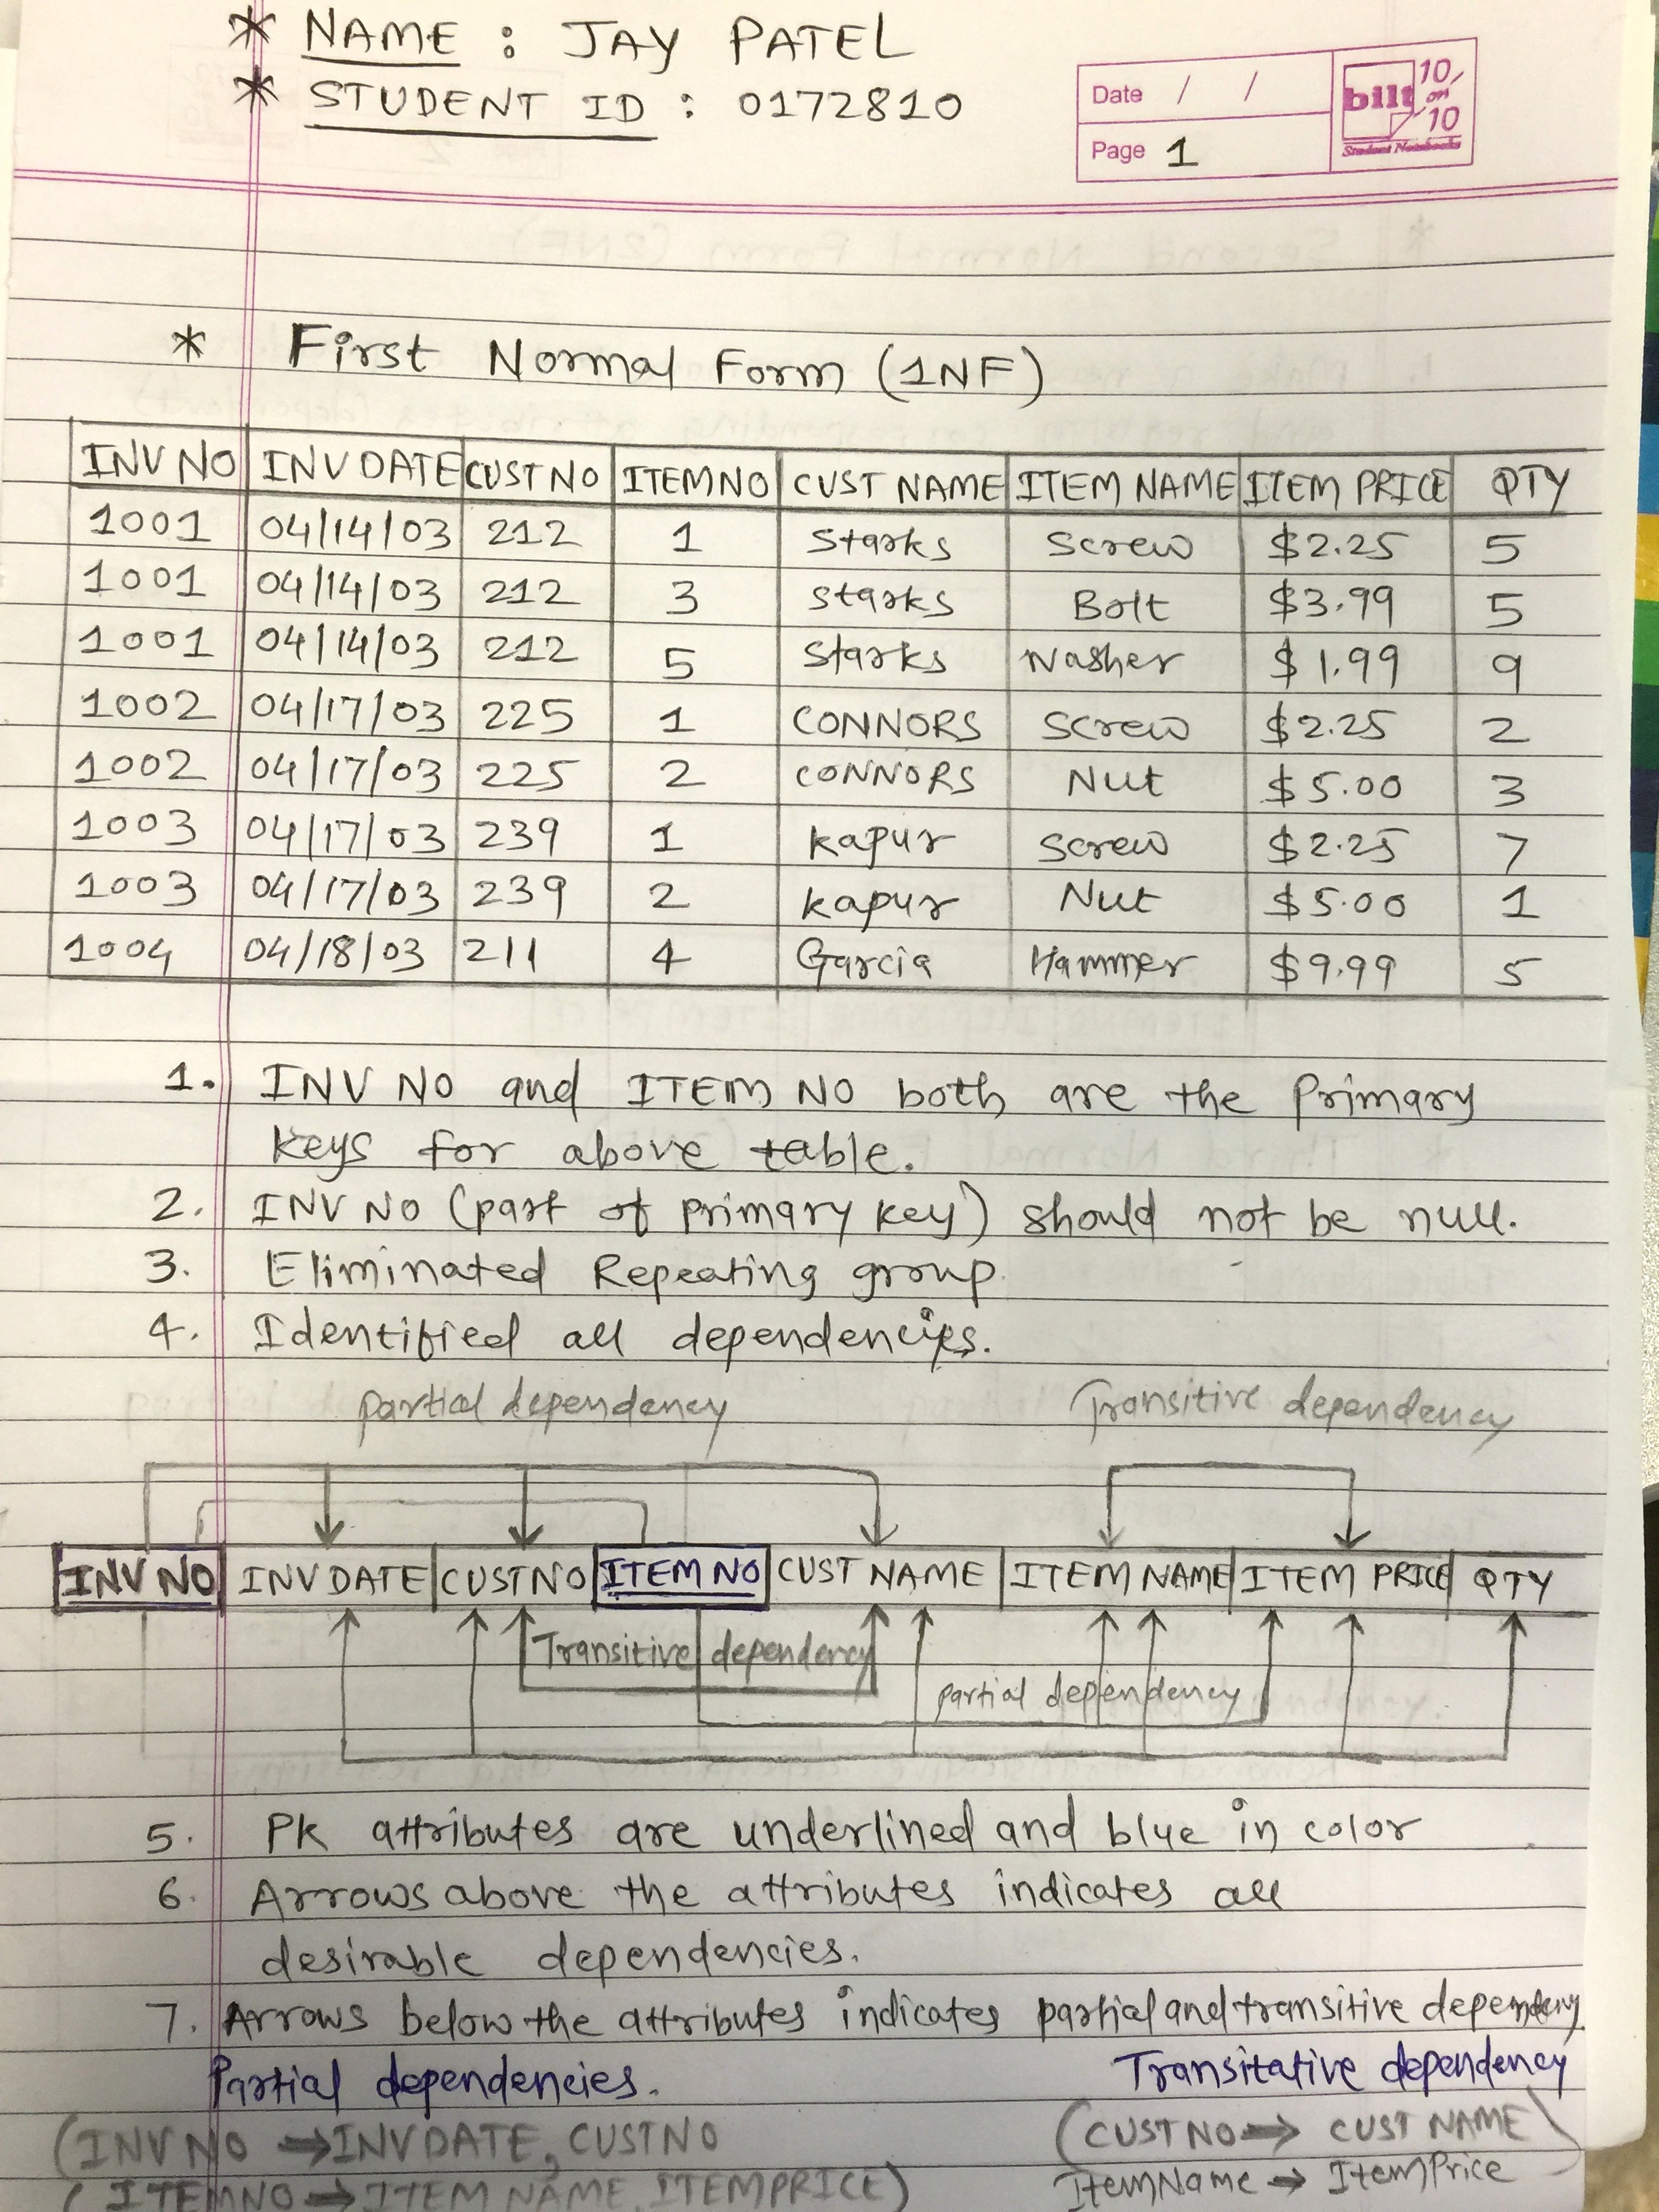 * NAME : JAY PATEL
* STUDENT ID : 0172810
Date / /
Page 1
bilt 10 on 10
Student Notebooks
* First Normal Form (1NF)
INV NO INV DATE CUST NO ITEM NO CUST NAME ITEM NAME ITEM PRICE QTY
1001 04/14/03 212 1 Starks Screw $2.25 5
1001 04/14/03 212 3 Starks Bolt $3.99 5
1001 04/14/03 212 5 Starks Washer $1.99 9
1002 04/17/03 225 1 CONNORS Screw $2.25 2
1002 04/17/03 225 2 CONNORS Nut $5.00 3
1003 04/17/03 239 1 Kapur Screw $2.25 7
1003 04/17/03 239 2 Kapur Nut $5.00 1
1004 04/18/03 211 4 Garcia Hammer $9.99 5
1. INV NO and ITEM NO both are the Primary
keys for above table.
2. INV NO (part of primary key) should not be null.
3. Eliminated Repeating group
4. Identified all dependencies.
partial dependency Transitive dependency
INV NO INV DATE CUST NO ITEM NO CUST NAME ITEM NAME ITEM PRICE QTY
Transitive dependency
partial dependency
5. PK attributes are underlined and blue in color
6. Arrows above the attributes indicates all
desirable dependencies.
7. Arrows below the attributes indicates partial and transitive dependency.
Partial dependencies. Transitative dependency
(INV NO → INVDATE, CUSTNO (CUST NO → CUST NAME)
(ITEMNO → ITEM NAME, ITEMPRICE) ItemName → ItemPrice